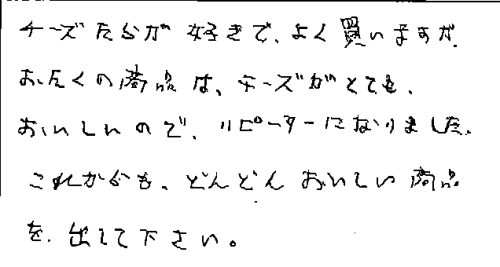 チーズたらが好きで、よく買いますが、
おたくの商品は、チーズがとても、
おいしいので、リピーターになりました。
これからも、どんどんおいしい商品
を、出して下さい。